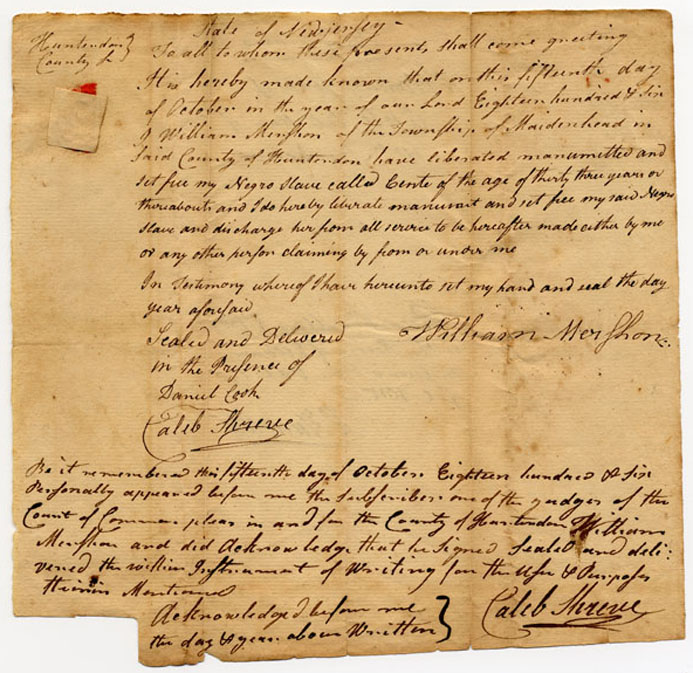 State of New Jersey
Huntendon
County Ss
To all to whom these presents shall come greeting
It is hereby made known that on this fifteenth day
of October in the year of our Lord Eighteen hundred & Six
I William Mershon of the Township of Maidenhead in
Said County of Huntendon have liberated manumitted and
set free my Negro Slave called of the age of thirty three years or
thereabouts and I do hereby liberate manumit and set free my said Negro
Slave and discharge her from all service to be hereafter made either by me
or any other person claiming by from or under me
In Testimony whereof I have hereunto set my hand and seal the day
year aforesaid
Sealed and Delivered
in the Presence of
Daniel Cook
Caleb Shreve
William Mershon
Be it remembered this fifteenth day of October Eighteen hundred & Six
Personally appeared before me the Subscriber one of the Judges of the
Court of Common pleas in and for the County of Huntendon William
Mershon and did Acknowledge that he Signed Sealed and deli
vered the within Instrument of Writing for the Use & Purposes
therein Mentioned
Acknowledged before me
the day & year above Written
Caleb Shreve